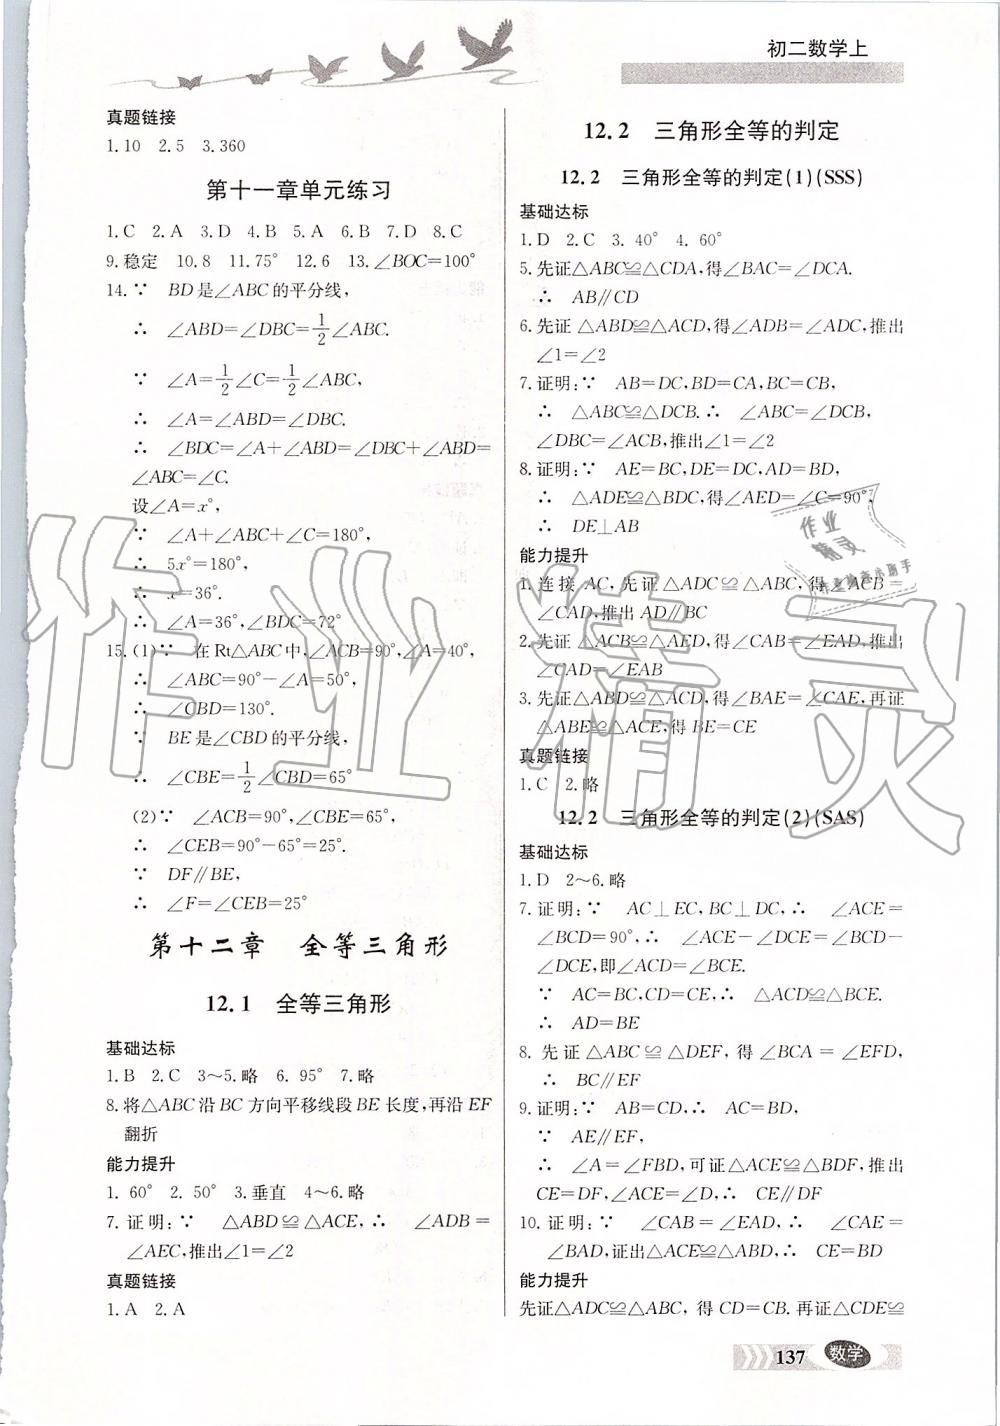 初二数学上
真题链接
1.10 2.5 3.360
第十一章单元练习
1.C 2.A 3.D 4.B 5.A 6.B 7.D 8.C
9.稳定 10.8 11.75° 12.6 13.∠BOC=100°
14.∵ BD是∠ABC的平分线,
∴ ∠ABD=∠DBC=1/2∠ABC.
∵ ∠A=1/2∠C=1/2∠ABC,
∴ ∠A=∠ABD=∠DBC.
∴ ∠BDC=∠A+∠ABD=∠DBC+∠ABD=
∠ABC=∠C.
设∠A=x°,
∵ ∠A+∠ABC+∠C=180°,
∴ 5x°=180°,
∴ x=36°.
∴ ∠A=36°,∠BDC=72°
15.(1)∵ 在Rt△ABC中,∠ACB=90°,∠A=40°,
∴ ∠ABC=90°-∠A=50°,
∴ ∠CBD=130°.
∵ BE是∠CBD的平分线,
∴ ∠CBE=1/2∠CBD=65°
(2)∵ ∠ACB=90°,∠CBE=65°,
∴ ∠CEB=90°-65°=25°.
∵ DF∥BE,
∴ ∠F=∠CEB=25°
第十二章 全等三角形
12.1 全等三角形
基础达标
1.B 2.C 3~5.略 6.95° 7.略
8.将△ABC沿BC方向平移线段BE长度,再沿EF
翻折
能力提升
1.60° 2.50° 3.垂直 4~6.略
7.证明:∵ △ABD≌△ACE,∴ ∠ADB=
∠AEC,推出∠1=∠2
真题链接
1.A 2.A
12.2 三角形全等的判定
12.2 三角形全等的判定(1)(SSS)
基础达标
1.D 2.C 3.40° 4.60°
5.先证△ABC≌△CDA,得∠BAC=∠DCA.
∴ AB∥CD
6.先证△ABD≌△ACD,得∠ADB=∠ADC,推出
∠1=∠2
7.证明:∵ AB=DC,BD=CA,BC=CB,
∴ △ABC≌△DCB.∴ ∠ABC=∠DCB,
∠DBC=∠ACB,推出∠1=∠2
8.证明:∵ AE=BC,DE=DC,AD=BD,
∴ △ADE≌△BDC,得∠AED=∠C=90°,
∴ DE⊥AB
能力提升
1.连接AC,先证△ADC≌△ABC,得∠ACB=
∠CAD,推出AD∥BC
2.先证△ACB≌△AED,得∠CAB=∠EAD,推出
∠CAD=∠EAB
3.先证△ABD≌△ACD,得∠BAE=∠CAE,再证
△ABE≌△ACE,得BE=CE
真题链接
1.C 2.略
12.2 三角形全等的判定(2)(SAS)
基础达标
1.D 2~6.略
7.证明:∵ AC⊥EC,BC⊥DC,∴ ∠ACE=
∠BCD=90°,∴ ∠ACE-∠DCE=∠BCD-
∠DCE,即∠ACD=∠BCE.
∵ AC=BC,CD=CE,∴ △ACD≌△BCE.
∴ AD=BE
8.先证△ABC≌△DEF,得∠BCA=∠EFD,
∴ BC∥EF
9.证明:∵ AB=CD,∴ AC=BD,
∵ AE∥EF,
∴ ∠A=∠FBD,可证△ACE≌△BDF,推出
CE=DF,∠ACE=∠D,∴ CE∥DF
10.证明:∵ ∠CAB=∠EAD,∴ ∠CAE=
∠BAD,证出△ACE≌△ABD,∴ CE=BD
能力提升
先证△ADC≌△ABC,得CD=CB.再证△CDE≌
137 数学
作业精灵
作业精灵